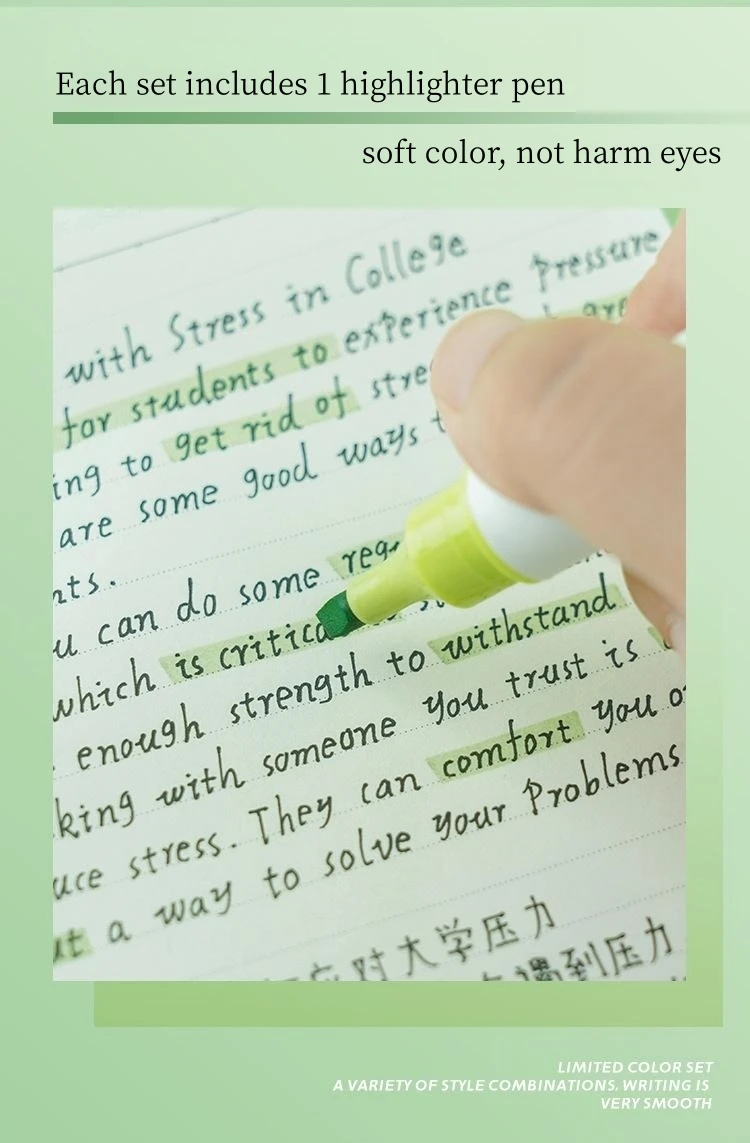 Each set includes 1 highlighter pen
soft color, not harm eyes
with Stress in College
for students to experience pressure
ing to get rid of
are some good ways
nts.
can do some
which is critica
enough strength to withstand
king with someone you trust is
uce stress. They can comfort you
a way to solve your problems
对大学压力
遇到压力
LIMITED COLOR SET
A VARIETY OF STYLE COMBINATIONS. WRITING IS
VERY SMOOTH